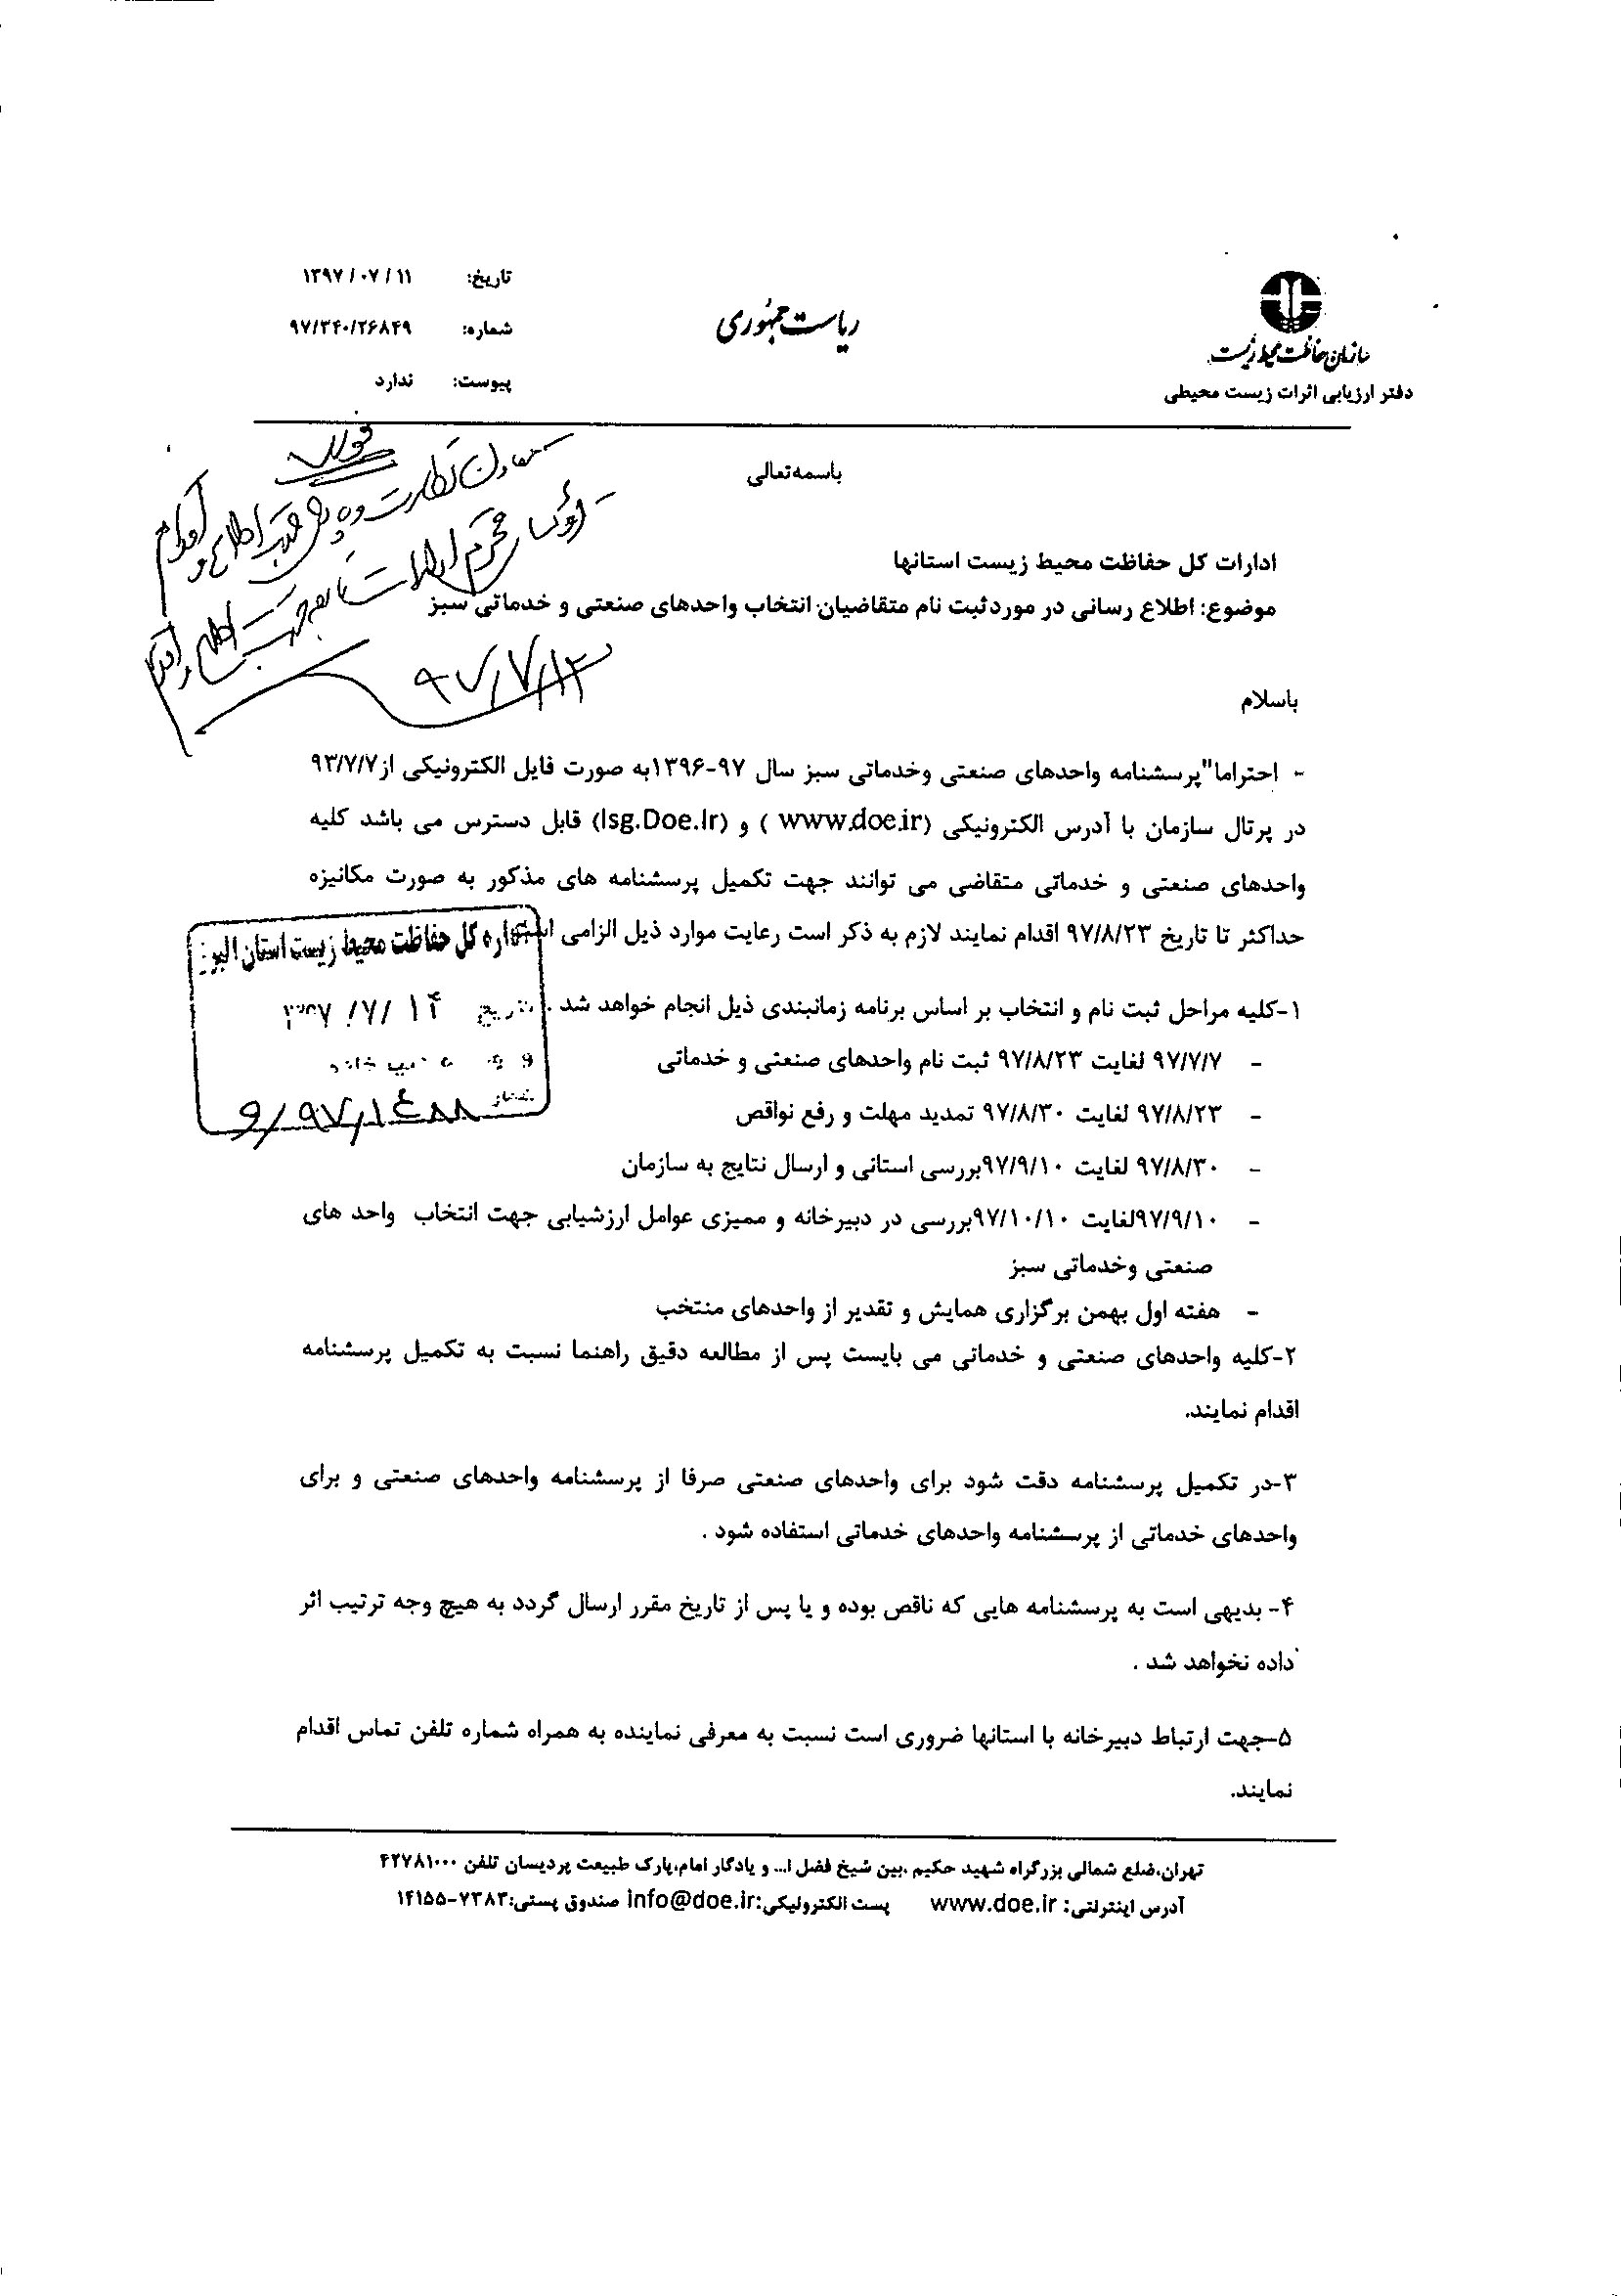 سازمان حفاظت محیط زیست
دفتر ارزیابی اثرات زیست محیطی
ریاست جمهوری
تاریخ: ۱۳۹۷/۰۷/۱۱
شماره: ۹۷/۳۴۰/۲۶۸۴۹
پیوست: ندارد
باسمه‌تعالی
فوری
معاون نظارت و پایش جهت اطلاع و اقدام
رؤسای محترم ادارات تابعه جهت اطلاع و اقدام
۹۷/۷/۱۲
ادارات کل حفاظت محیط زیست استانها
موضوع: اطلاع رسانی در مورد ثبت نام متقاضیان انتخاب واحدهای صنعتی و خدماتی سبز
باسلام
- احتراما"پرسشنامه واحدهای صنعتی وخدماتی سبز سال ۹۷-۱۳۹۶به صورت فایل الکترونیکی از۹۳/۷/۷
در پرتال سازمان با آدرس الکترونیکی (www.doe.ir ) و (Isg.Doe.Ir) قابل دسترس می باشد کلیه
واحدهای صنعتی و خدماتی متقاضی می توانند جهت تکمیل پرسشنامه های مذکور به صورت مکانیزه
حداکثر تا تاریخ ۹۷/۸/۲۳ اقدام نمایند لازم به ذکر است رعایت موارد ذیل الزامی است
اداره کل حفاظت محیط زیست استان البرز
تاریخ ۱۴ /۷/ ۱۳۹۷
شماره و/۹۷/۱۴۸۸
۱-کلیه مراحل ثبت نام و انتخاب بر اساس برنامه زمانبندی ذیل انجام خواهد شد .
- ۹۷/۷/۷ لغایت ۹۷/۸/۲۳ ثبت نام واحدهای صنعتی و خدماتی
- ۹۷/۸/۲۳ لغایت ۹۷/۸/۳۰ تمدید مهلت و رفع نواقص
- ۹۷/۸/۳۰ لغایت ۹۷/۹/۱۰بررسی استانی و ارسال نتایج به سازمان
- ۹۷/۹/۱۰لغایت ۹۷/۱۰/۱۰بررسی در دبیرخانه و ممیزی عوامل ارزشیابی جهت انتخاب واحد های
صنعتی وخدماتی سبز
- هفته اول بهمن برگزاری همایش و تقدیر از واحدهای منتخب
۲-کلیه واحدهای صنعتی و خدماتی می بایست پس از مطالعه دقیق راهنما نسبت به تکمیل پرسشنامه
اقدام نمایند.
۳-در تکمیل پرسشنامه دقت شود برای واحدهای صنعتی صرفا از پرسشنامه واحدهای صنعتی و برای
واحدهای خدماتی از پرسشنامه واحدهای خدماتی استفاده شود .
۴- بدیهی است به پرسشنامه هایی که ناقص بوده و یا پس از تاریخ مقرر ارسال گردد به هیچ وجه ترتیب اثر
داده نخواهد شد .
۵-جهت ارتباط دبیرخانه با استانها ضروری است نسبت به معرفی نماینده به همراه شماره تلفن تماس اقدام
نمایند.
تهران،ضلع شمالی بزرگراه شهید حکیم ،بین شیخ فضل ا... و یادگار امام،پارک طبیعت پردیسان تلفن ۴۲۷۸۱۰۰۰
آدرس اینترنتی: www.doe.ir پست الکترونیکی:info@doe.ir صندوق پستی:۷۳۸۳-۱۴۱۵۵